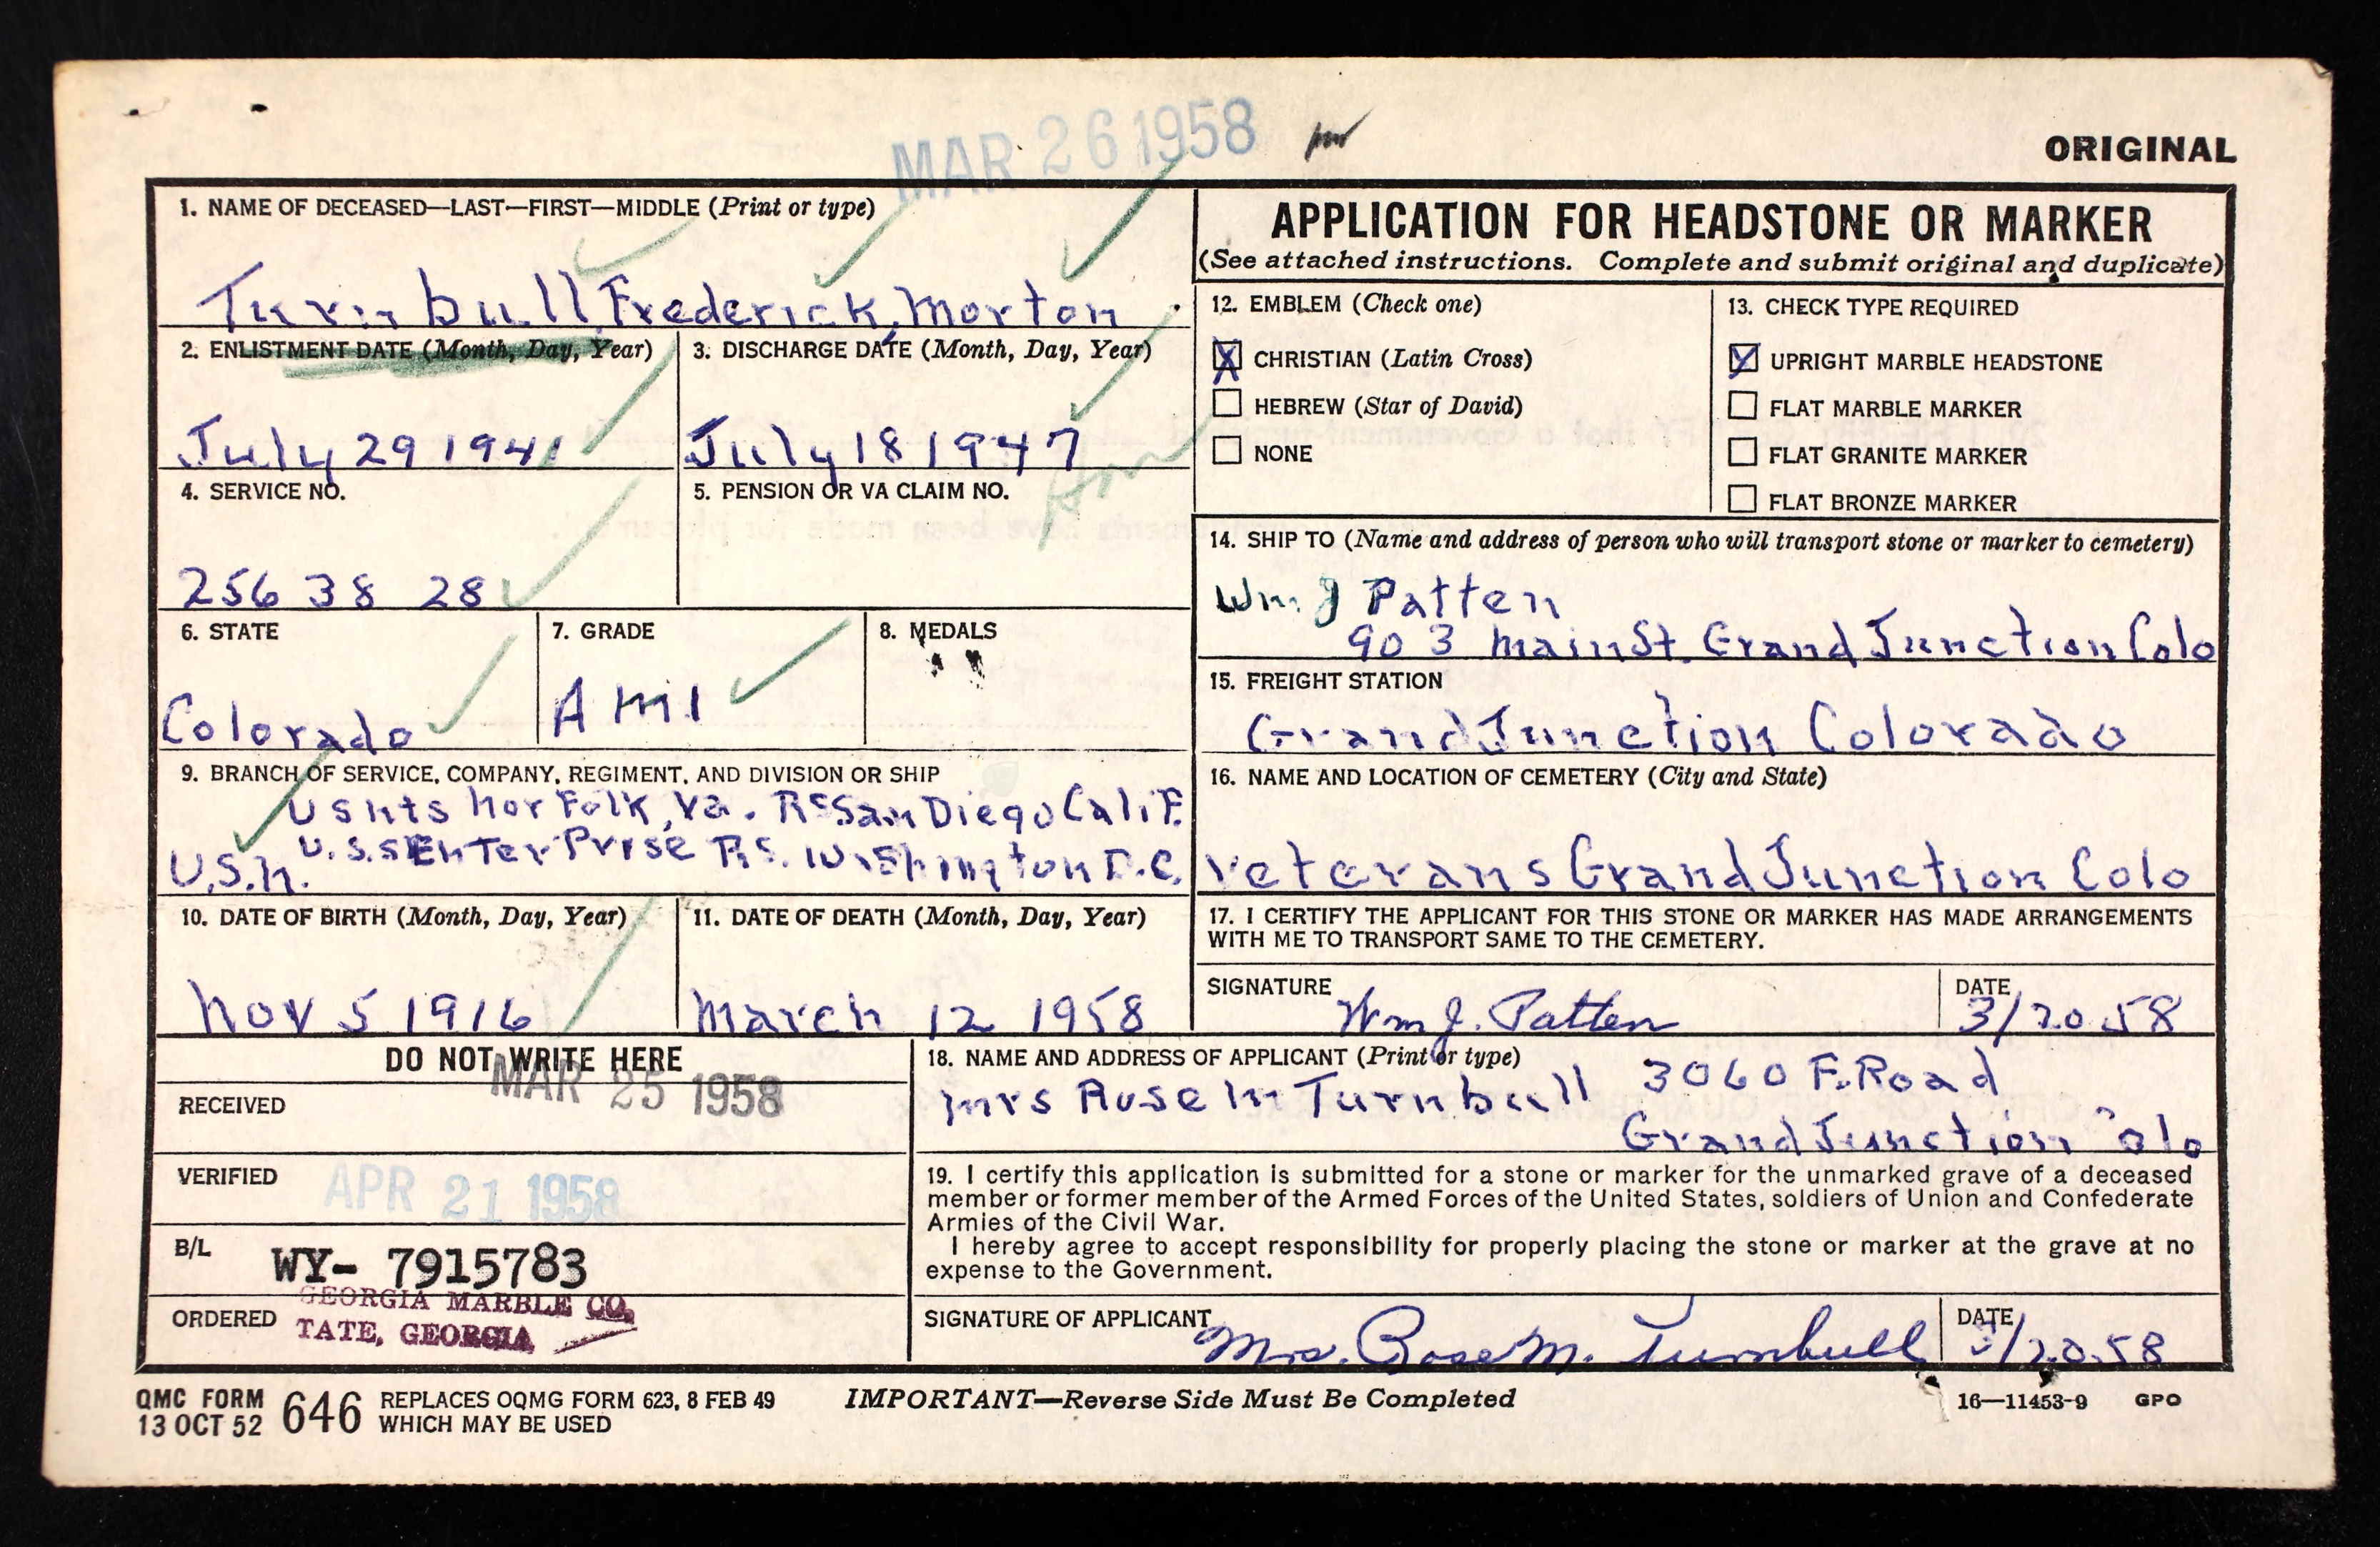 MAR 26 1958
ORIGINAL
1. NAME OF DECEASED—LAST—FIRST—MIDDLE (Print or type)
Turnbull, Frederick, Morton
2. ENLISTMENT DATE (Month, Day, Year)
July 29 1941
3. DISCHARGE DATE (Month, Day, Year)
July 18 1947
Hon
4. SERVICE NO.
256 38 28
5. PENSION OR VA CLAIM NO.
6. STATE
Colorado
7. GRADE
AM1
8. MEDALS
9. BRANCH OF SERVICE, COMPANY, REGIMENT, AND DIVISION OR SHIP
USNTS Norfolk, Va. RS San Diego Calif.
U.S.N. U.S.S Enterprise RS. Washington D.C.
10. DATE OF BIRTH (Month, Day, Year)
Nov 5 1916
11. DATE OF DEATH (Month, Day, Year)
March 12 1958
APPLICATION FOR HEADSTONE OR MARKER
(See attached instructions. Complete and submit original and duplicate)
12. EMBLEM (Check one)
X CHRISTIAN (Latin Cross)
HEBREW (Star of David)
NONE
13. CHECK TYPE REQUIRED
UPRIGHT MARBLE HEADSTONE
FLAT MARBLE MARKER
FLAT GRANITE MARKER
FLAT BRONZE MARKER
14. SHIP TO (Name and address of person who will transport stone or marker to cemetery)
Wm J Patten
903 Main St. Grand Junction Colo
15. FREIGHT STATION
Grand Junction Colorado
16. NAME AND LOCATION OF CEMETERY (City and State)
Veterans Grand Junction Colo
17. I CERTIFY THE APPLICANT FOR THIS STONE OR MARKER HAS MADE ARRANGEMENTS
WITH ME TO TRANSPORT SAME TO THE CEMETERY.
SIGNATURE
Wm J. Patten
DATE
3/20 58
DO NOT WRITE HERE
MAR 25 1958
RECEIVED
VERIFIED
APR 21 1958
B/L
WY- 7915783
ORDERED
GEORGIA MARBLE CO.
TATE, GEORGIA
18. NAME AND ADDRESS OF APPLICANT (Print or type)
Mrs Rose M Turnbull 3060 F. Road
Grand Junction Colo
19. I certify this application is submitted for a stone or marker for the unmarked grave of a deceased
member or former member of the Armed Forces of the United States, soldiers of Union and Confederate
Armies of the Civil War.
I hereby agree to accept responsibility for properly placing the stone or marker at the grave at no
expense to the Government.
SIGNATURE OF APPLICANT
Mrs. Rose M. Turnbull
DATE
3/20.58
QMC FORM
13 OCT 52
646
REPLACES OQMG FORM 623, 8 FEB 49
WHICH MAY BE USED
IMPORTANT—Reverse Side Must Be Completed
16—11453-9 GPO